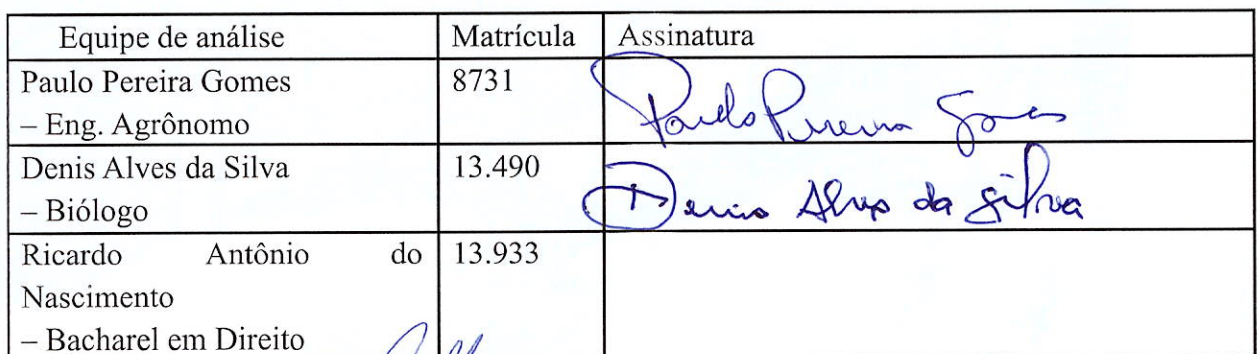 Equipe de análise Matrícula Assinatura
Paulo Pereira Gomes 8731
– Eng. Agrônomo Paulo Pereira Gomes
Denis Alves da Silva 13.490
– Biólogo Denis Alves da Silva
Ricardo Antônio do 13.933
Nascimento
– Bacharel em Direito